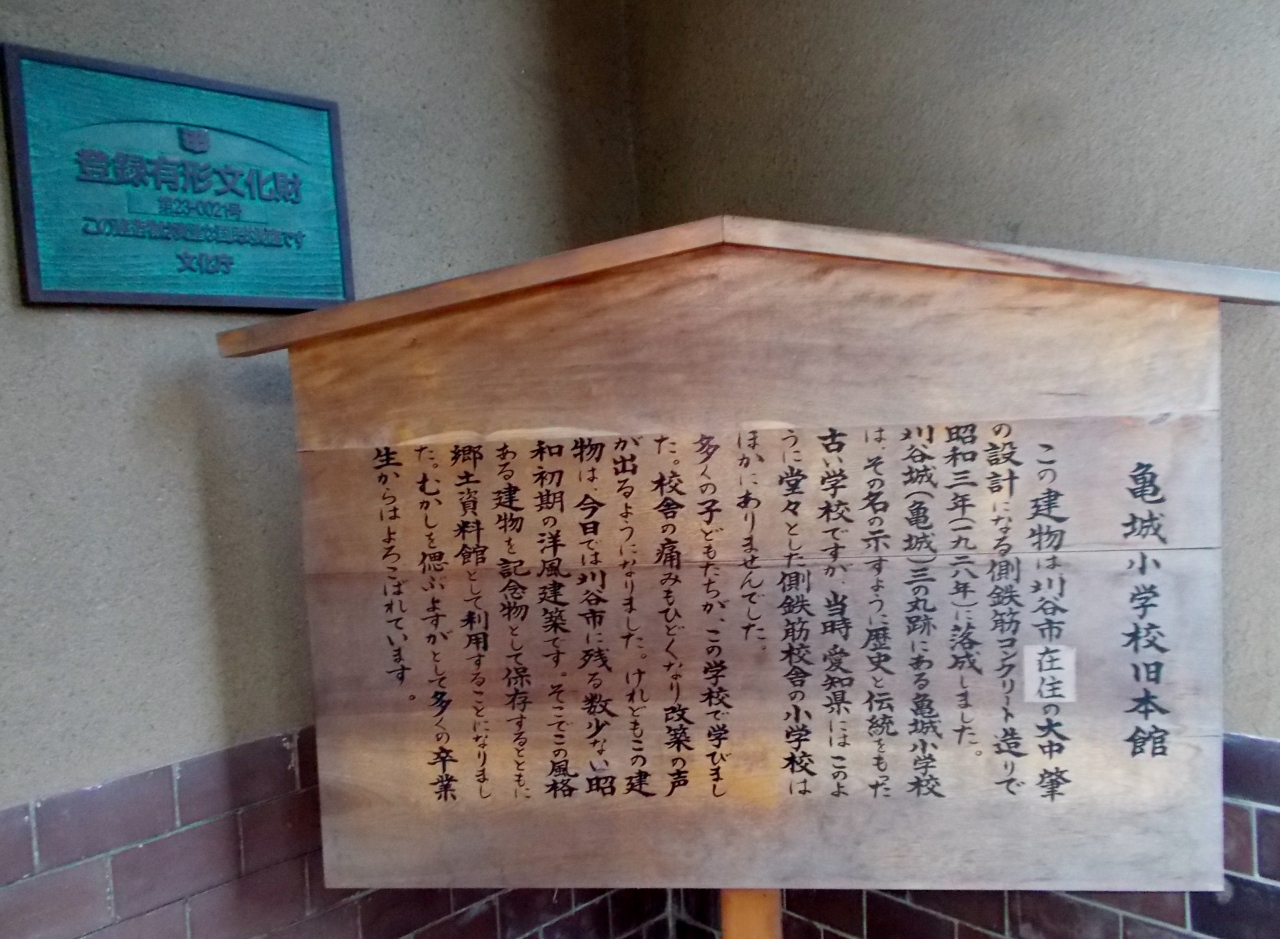 登録有形文化財
第23-0021号
この建造物は貴重な国民的財産です
文化庁
亀城小学校旧本館
この建物は刈谷市在住の大中肇
の設計になる側鉄筋コンクリート造りで
昭和三年(一九二八年)に落成しました。
刈谷城(亀城)三の丸跡にある亀城小学校
は、その名の示すように歴史と伝統をもった
古い学校ですが、当時愛知県にはこのよ
うに堂々とした側鉄筋校舎の小学校は
ほかにありませんでした。
多くの子どもたちが、この学校で学びまし
た。校舎の痛みもひどくなり改築の声
が出るようになりました。けれどもこの建
物は、今日では刈谷市に残る数少ない昭
和初期の洋風建築です。そこでこの風格
ある建物を記念物として保存するとともに
郷土資料館として利用することになりまし
た。むかしを偲ぶよすがとして多くの卒業
生からはよろこばれています。